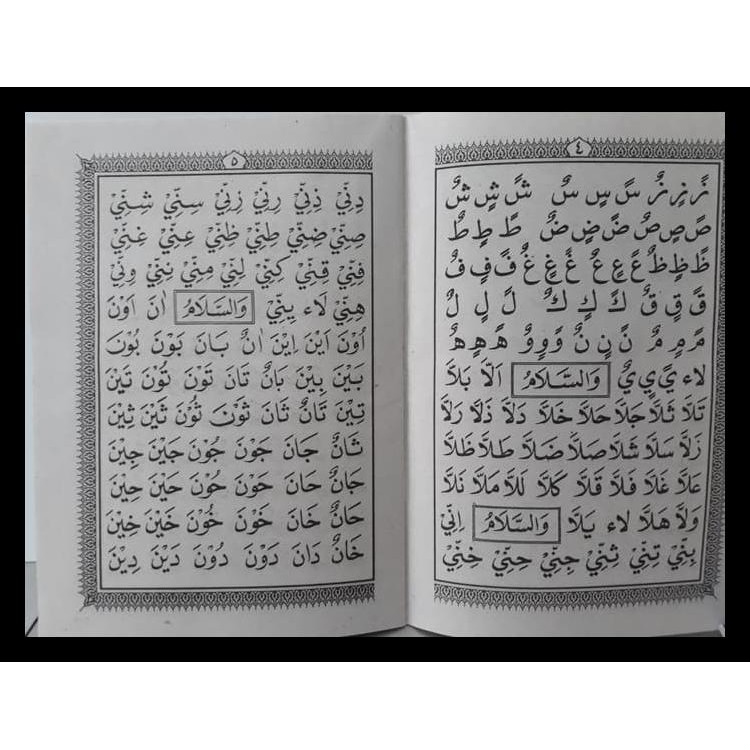 ٤
زً زٍ زٌ سً سٍ سٌ شً شٍ شٌ
صً صٍ صٌ ضً ضٍ ضٌ طً طٍ طٌ
ظً ظٍ ظٌ عً عٍ عٌ غً غٍ غٌ فً فٍ فٌ
قً قٍ قٌ كً كٍ كٌ لً لٍ لٌ
مً مٍ مٌ نً نٍ نٌ وً وٍ وٌ هً هٍ هٌ
لاء يً يٍ يٌ وَالسَّلَامُ اَلَّا بَلَّا
تَلَّا ثَلَّا جَلَّا حَلَّا خَلَّا دَلَّا ذَلَّا رَلَّا
زَلَّا سَلَّا شَلَّا صَلَّا ضَلَّا طَلَّا ظَلَّا
عَلَّا غَلَّا فَلَّا قَلَّا كَلَّا لَلَّا مَلَّا نَلَّا
وَلَّا هَلَّا لاء يَلَّا وَالسَّلَامُ اِنِّيْ
بِنِّيْ تِنِّيْ ثِنِّيْ جِنِّيْ حِنِّيْ خِنِّيْ
٥
دِنِّيْ ذِنِّيْ رِنِّيْ زِنِّيْ سِنِّيْ شِنِّيْ
صِنِّيْ ضِنِّيْ طِنِّيْ ظِنِّيْ عِنِّيْ غِنِّيْ
فِنِّيْ قِنِّيْ كِنِّيْ لِنِّيْ مِنِّيْ نِنِّيْ وِنِّيْ
هِنِّيْ لاء يِنِّيْ وَالسَّلَامُ اٰنَ اَوْنَ
اُوْنَ اَيْنَ اِيْنَ اٰنٌ بَانَ بَوْنَ بُوْنَ
بَيْنَ بِيْنَ بَانٌ تَانَ تَوْنَ تُوْنَ تَيْنَ
تِيْنَ تَانٌ ثَانَ ثَوْنَ ثُوْنَ ثَيْنَ ثِيْنَ
ثَانٌ جَانَ جَوْنَ جُوْنَ جَيْنَ جِيْنَ
جَانٌ حَانَ حَوْنَ حُوْنَ حَيْنَ حِيْنَ
حَانٌ خَانَ خَوْنَ خُوْنَ خَيْنَ خِيْنَ
خَانٌ دَانَ دَوْنَ دُوْنَ دَيْنَ دِيْنَ